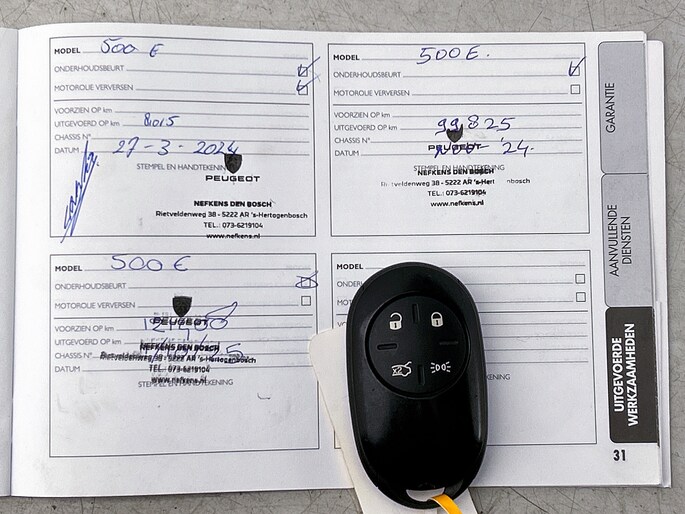 MODEL 500 E
ONDERHOUDSBEURT
MOTOROLIE VERVERSEN
VOORZIEN OP km
UITGEVOERD OP km 8015
CHASSIS N°
DATUM 27-3-2024
STEMPEL EN HANDTEKENING
PEUGEOT
NEFKENS DEN BOSCH
Rietveldenweg 38 - 5222 AR 's-Hertogenbosch
TEL.: 073-6219104
www.nefkens.nl
MODEL 500 E.
ONDERHOUDSBEURT
MOTOROLIE VERVERSEN
VOORZIEN OP km
UITGEVOERD OP km
CHASSIS N°
DATUM '24.
PEUGEOT
STEMPEL EN HANDTEKENING
NEFKENS DEN BOSCH
Rietveldenweg 38 - 5222 AR 's-Hert
TEL.: 073-6219104
www.nefkens.nl
MODEL 500 E
ONDERHOUDSBEURT
MOTOROLIE VERVERSEN
PEUGEOT
VOORZIEN OP km
UITGEVOERD OP km
NEFKENS DEN BOSCH
CHASSIS N°
Rietveldenweg 38 - 5222 AR 's-Hertogenbosch
DATUM
TEL.: 073-6219104
www.nefkens.nl
STEMPEL EN HANDTEKENING
MODEL
GARANTIE
AANVULLENDE
DIENSTEN
UITGEVOERDE
WERKZAAMHEDEN
31